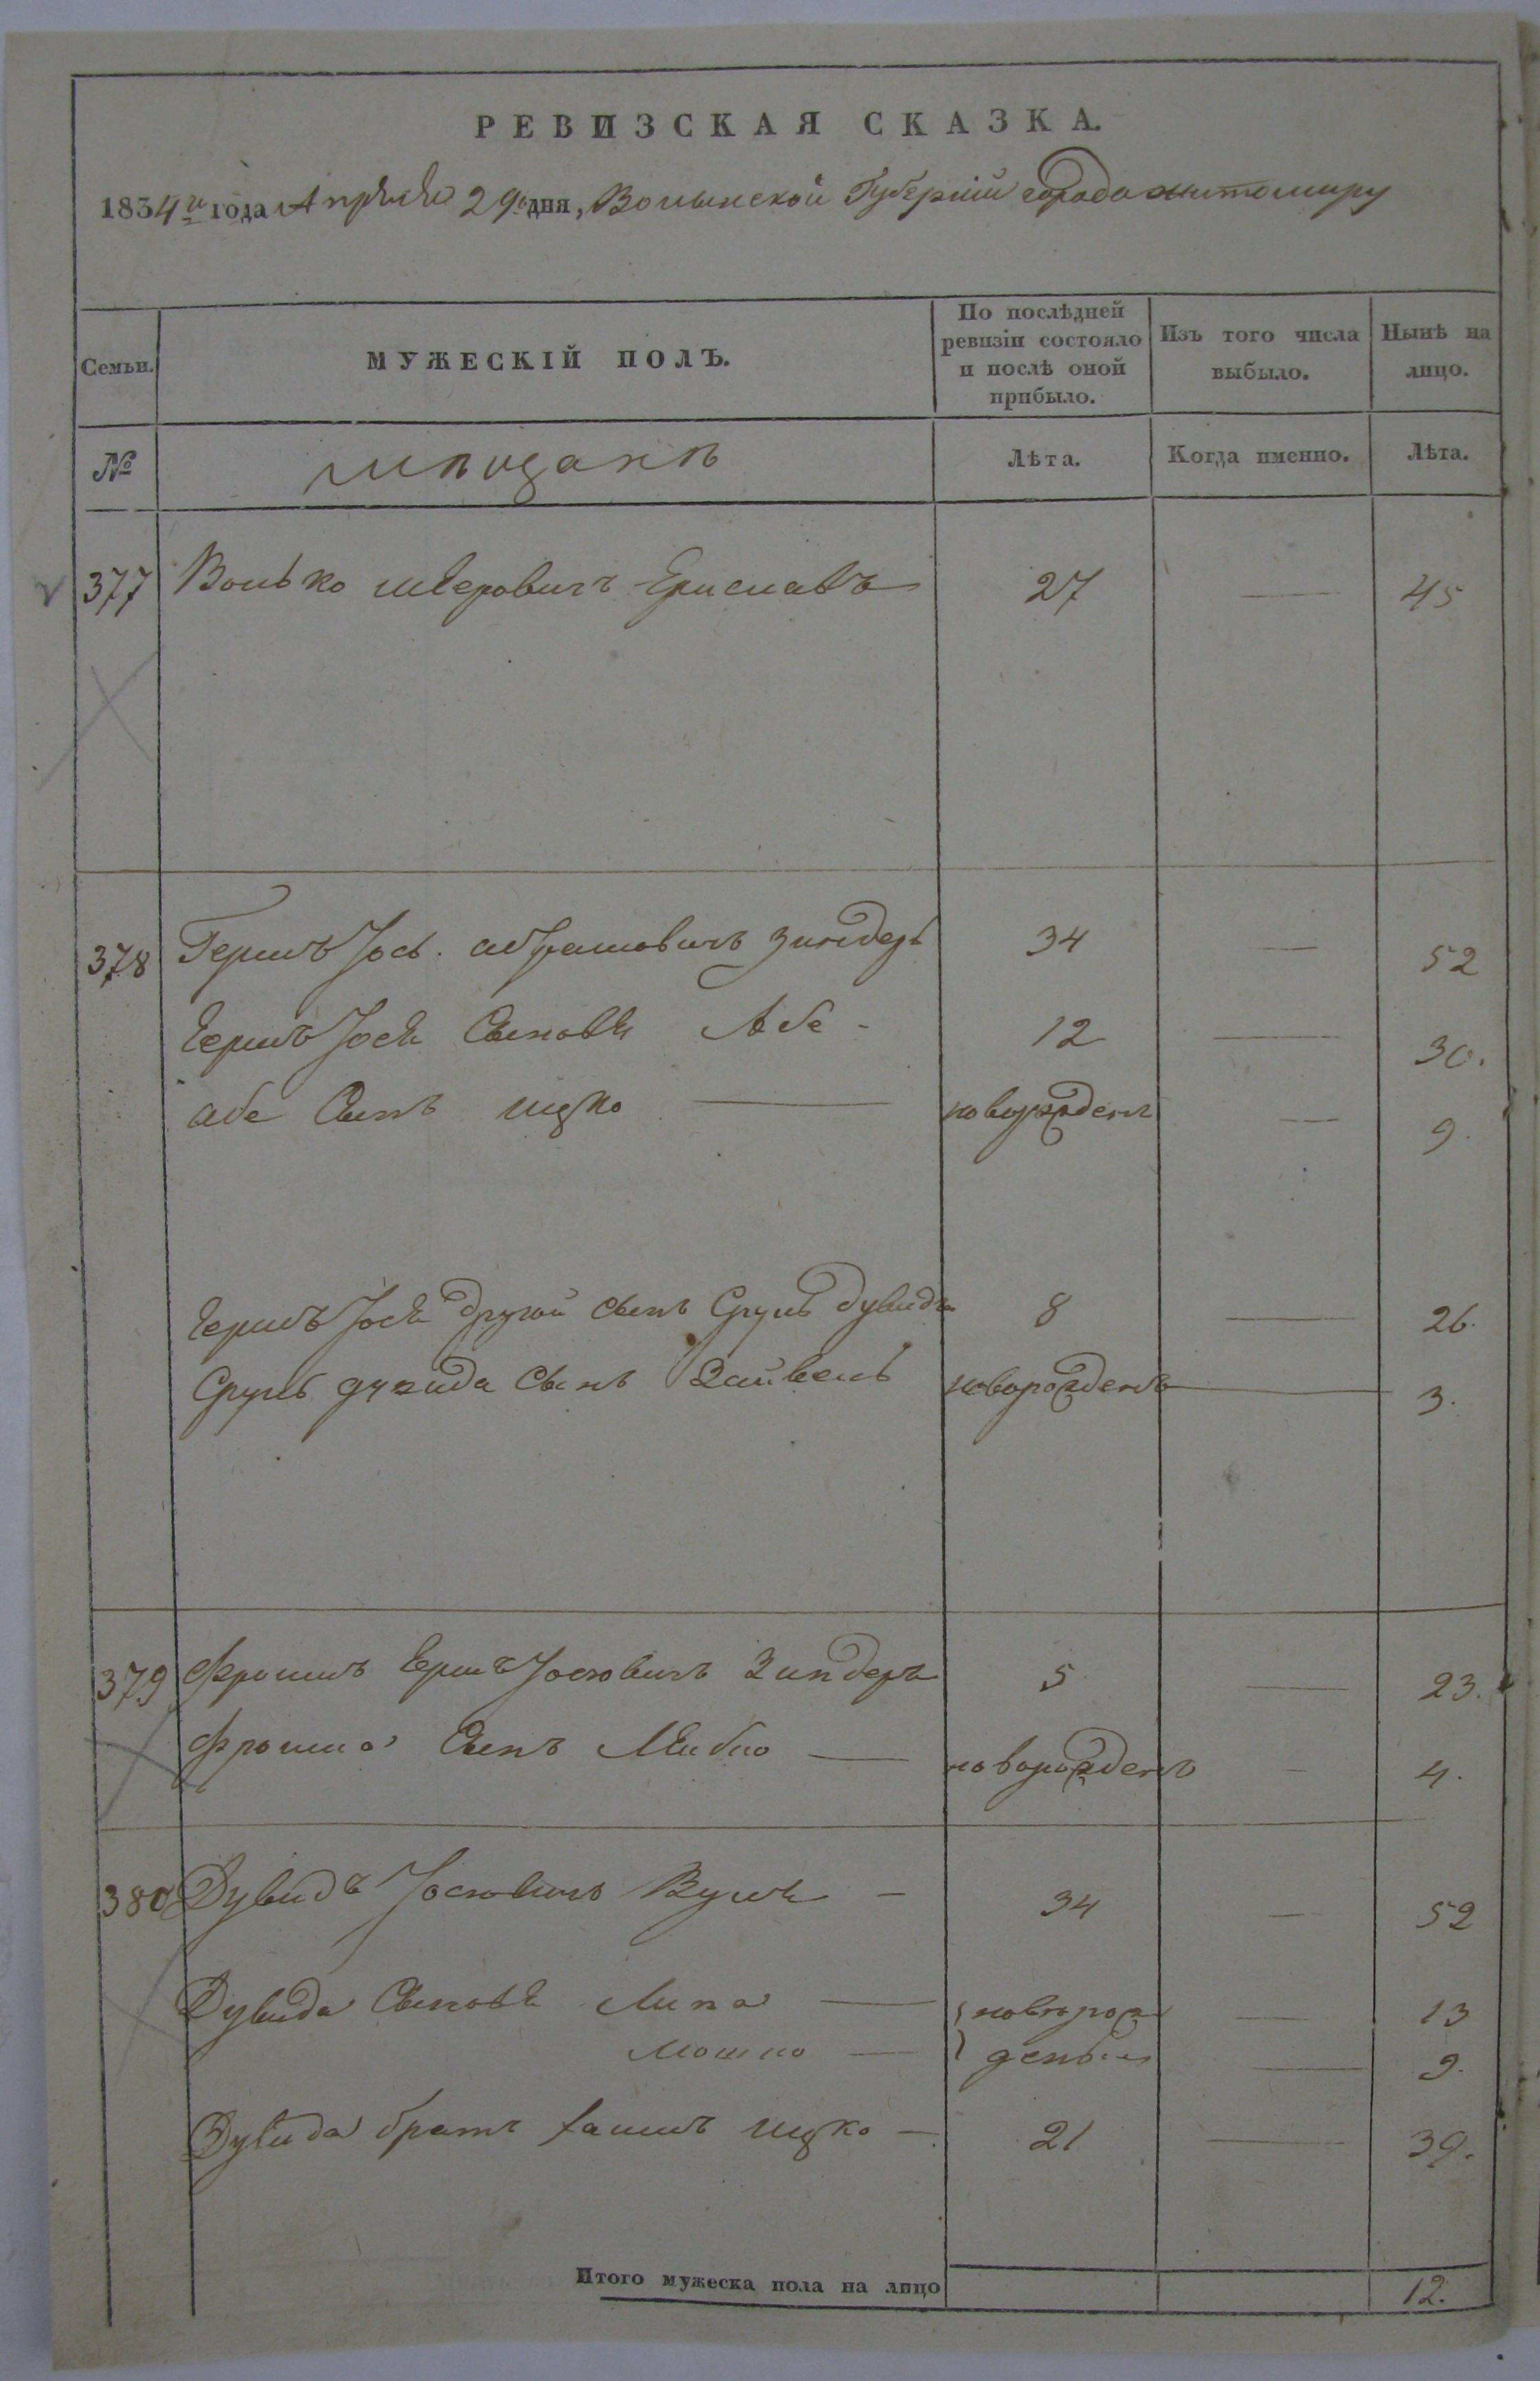 РЕВИЗСКАЯ СКАЗКА.
1834го года Апреля 29 дня, Волынской Губернии города житомиру
Семьи. МУЖЕСКІЙ ПОЛЪ. По послѣдней ревизіи состояло и послѣ оной прибыло. Изъ того числа выбыло. Нынѣ на лицо.
№ мѣщанѣ Лѣта. Когда именно. Лѣта.
377 Волько Меровичъ 27 — 45
378 Гершъ Іось абрамовичъ Зиндеръ 34 — 52
Гершъ Іося Сыновя Абе - 12 — 30.
абе Сынъ ицко — новорожденъ — 9.
Гершъ Іося другой сынъ Сруль дувидъ 8 — 26.
Сруль дувида Сынъ Зайвель новорожденъ — 3.
379 Фроимъ Гершъ Іосиовичъ Зиндеръ 5 — 23.
Фроима Сынъ Лейбко — новорожденъ — 4.
380 Дувидъ Іосиовичъ - 34 — 52
Дувида Сыновя Липа — новорож — 13
Мошко — дены — 9.
Дувида братъ хаимъ ицко — 21 — 39.
Итого мужеска пола на лицо 12.